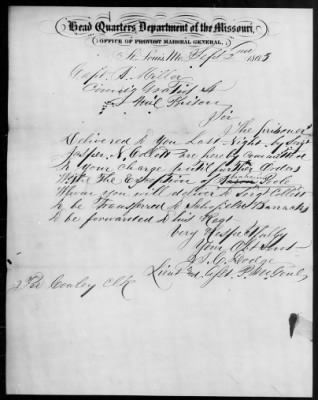 Head Quarters Department of the Missouri,
OFFICE OF PROVOST MARSHAL GENERAL,
St. Louis, Mo. Sept 2nd 1863
Capt. S. Miller
Military Prison
Sir
The Prisoners
Delivered to you Last Night by Sergt
Jasper N. Ellett are hereby Committed
to your charge until further Orders
With The Exception of
Whom you will deliver to Sergt Ellett
to be Transferred to Schofield Barracks
to be forwarded to his Regt
Very Respectfully
Your Obt Servt
Dodge
Lieut
Per Conley Clk